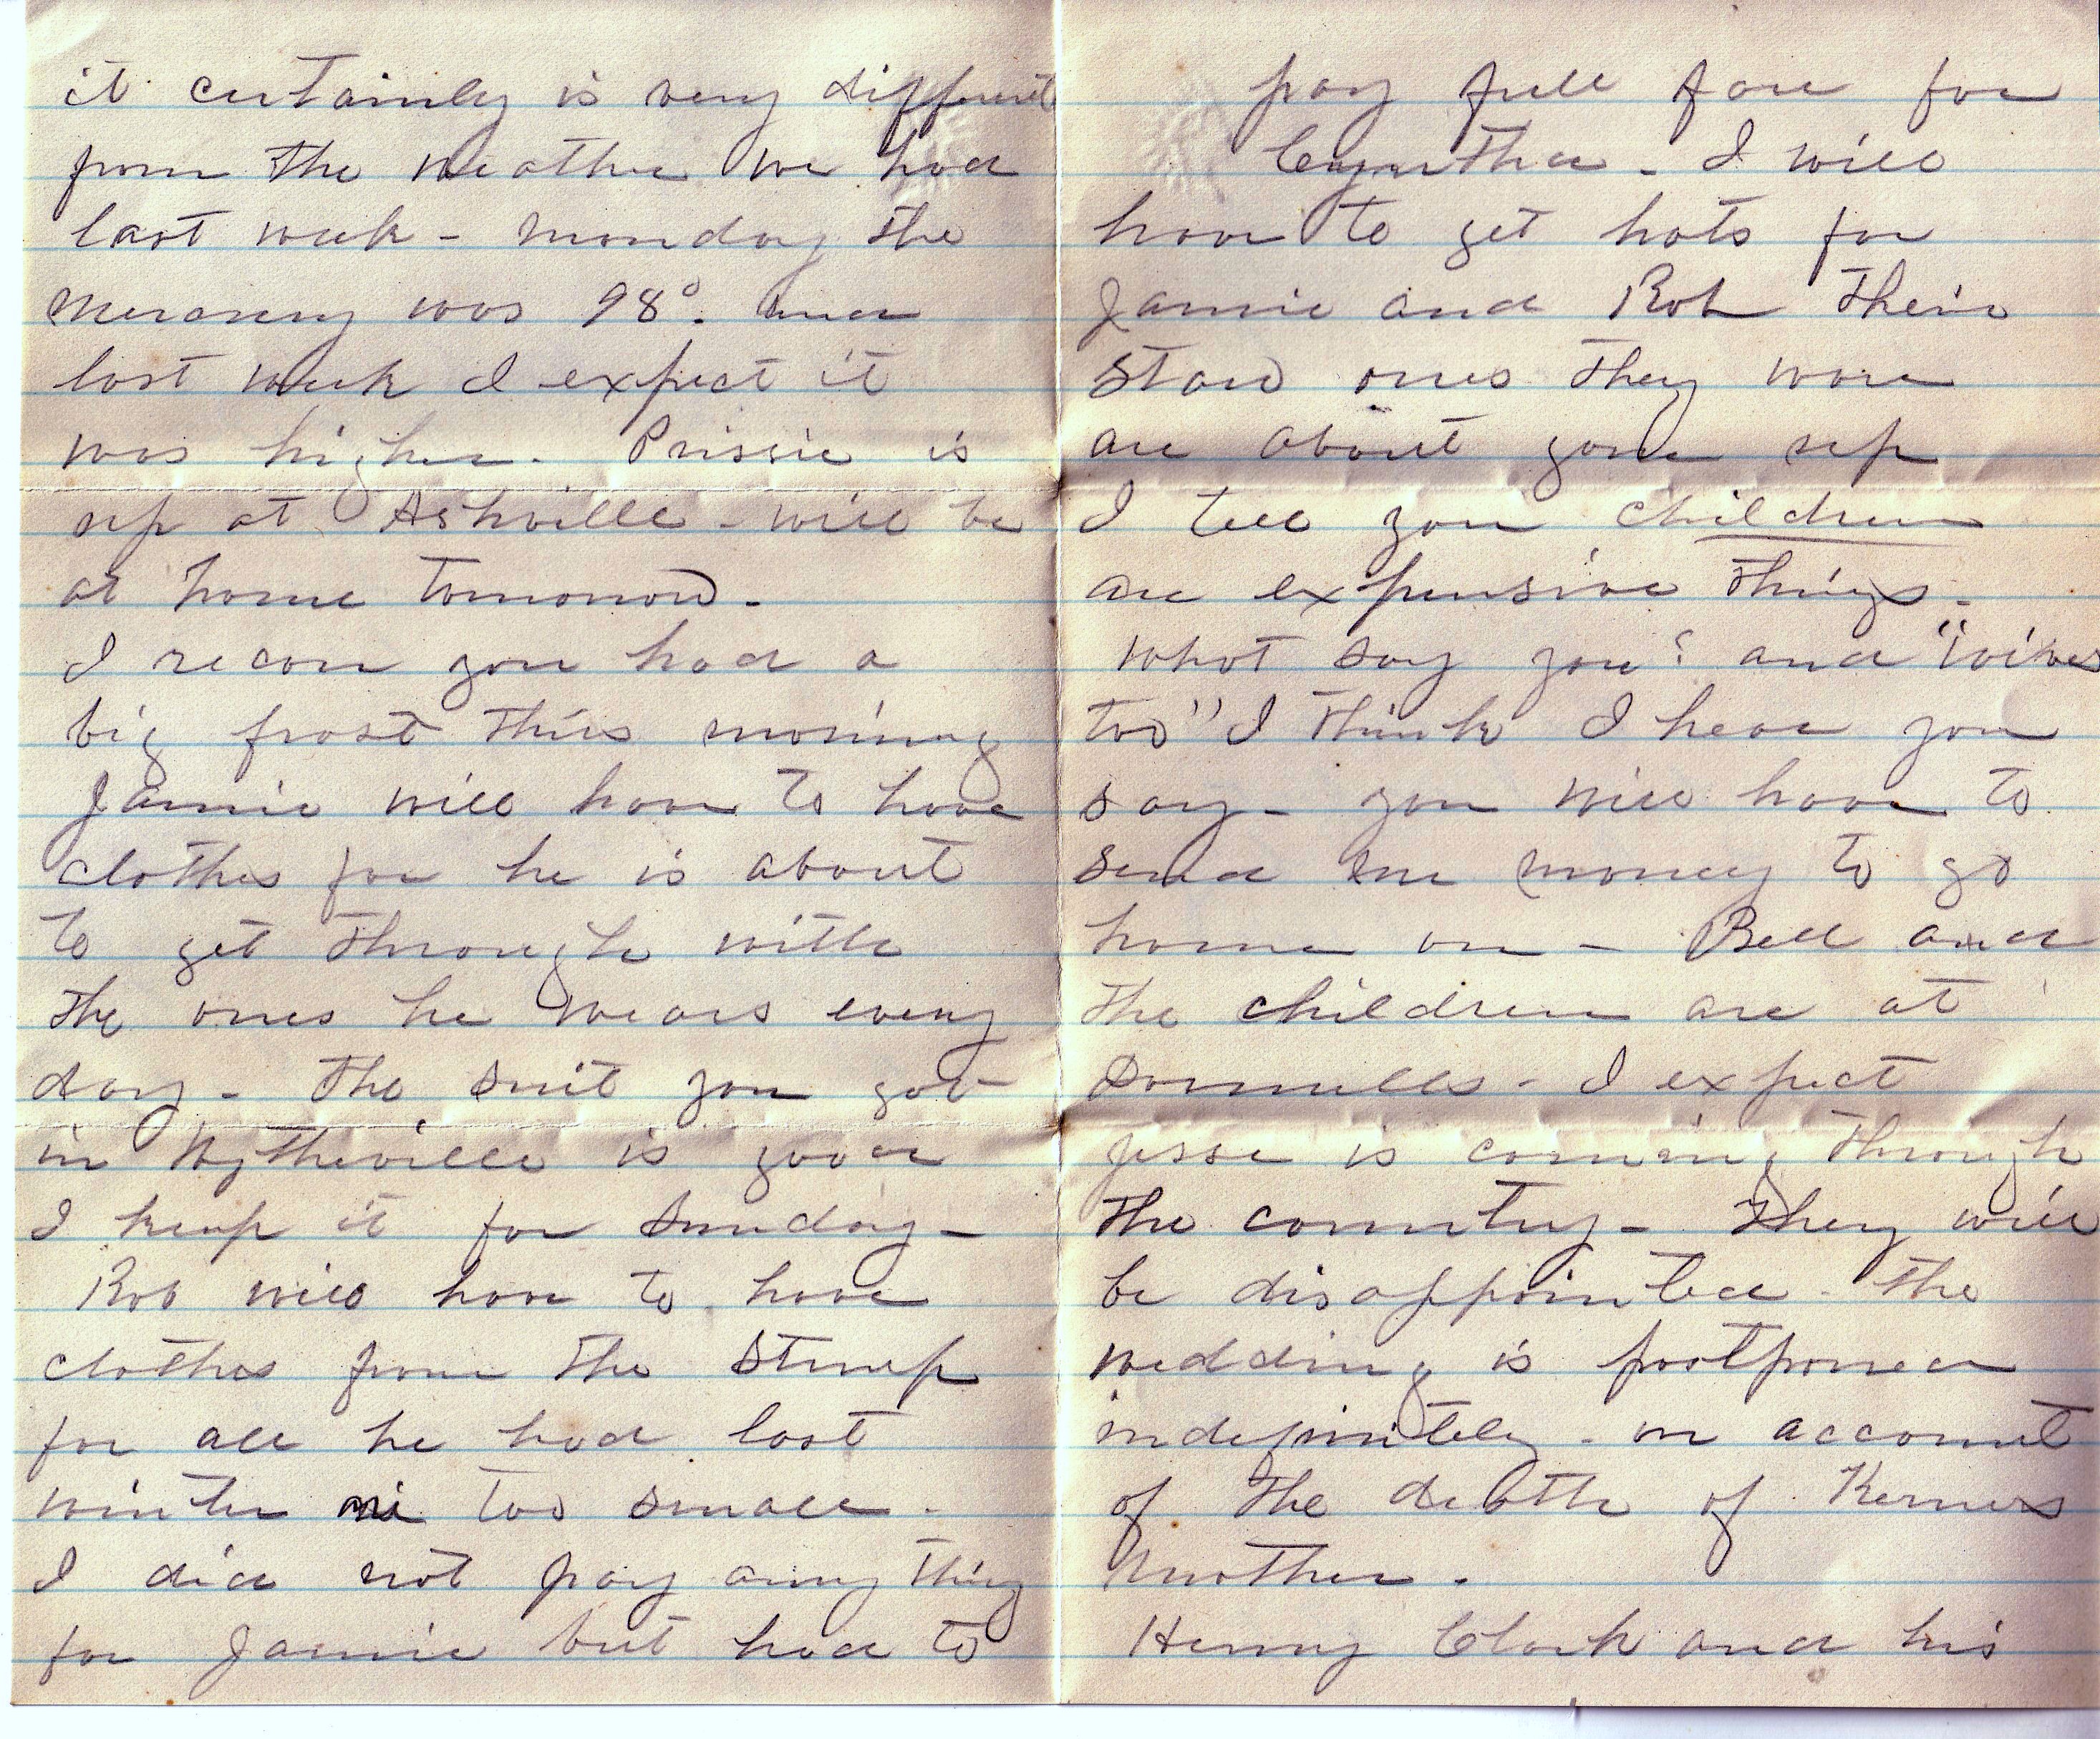 it certainly is very different
from the weather we had
last week - monday the
mercury was 98°. and
last week I expect it
was higher. Prissie is
up at Ashville - will be
at home tomorrow -
I recon you had a
big frost this morning
Jamie will have to have
clothes for he is about
to get through with
the ones he wears every
day - The suit you got
in Wytheville is good
I keep it for Sunday -
Rob will have to have
clothes from the stump
for all he had last
winter is too small -
I did not pay any thing
for Jamie but had to
pay full fare for
Cyntha - I will
have to get hats for
Jamie and Rob Their
straw ones they wore
are about gone up
I tell you children
are expensive things -
What say you? and "wives
too" I think I hear you
say - you will have to
send me money to go
home on - Bell and
the children are at
- I expect
Jesse is coming through
the country - They will
be disappointed - the
wedding is postponed
indefinitely - on account
of the death of Kerners
Mother -
Henry Clark and his